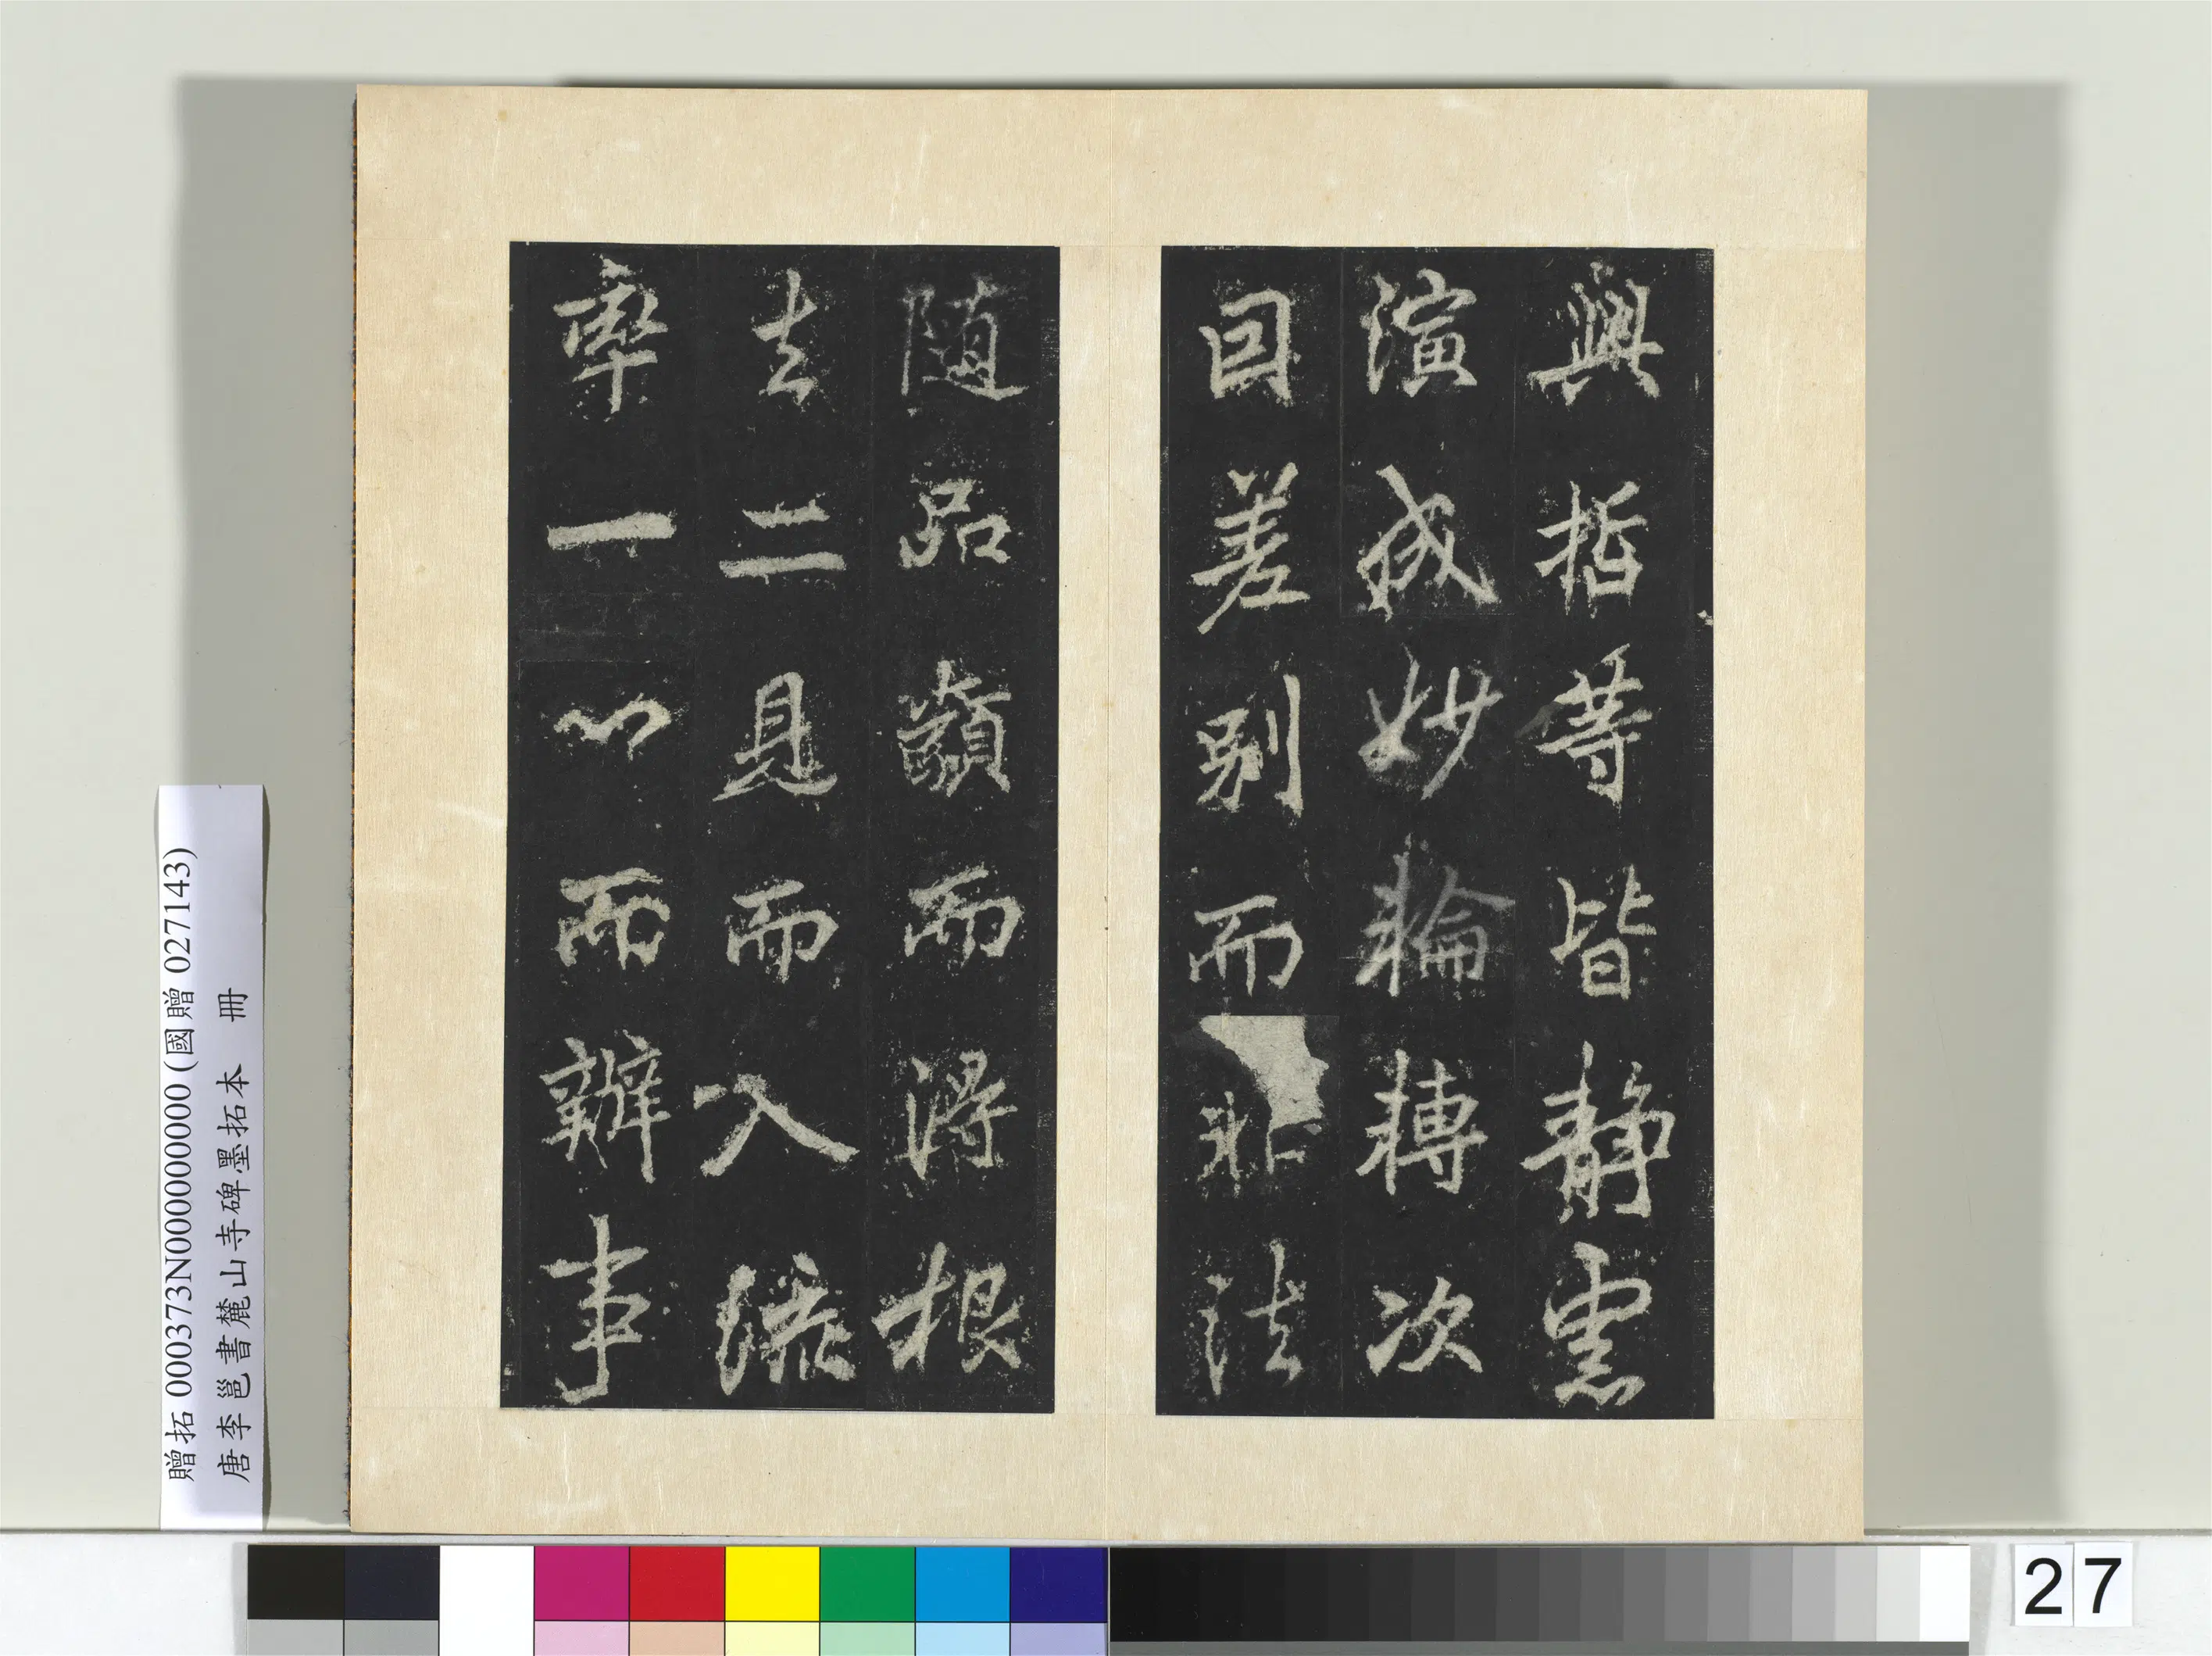 興哲等皆靜慮
演成妙輪轉次
囙差別而非法
隨品類而得根
去二見而入流
率一心而辦事
贈拓 000373N000000000 (國贈 027143)
唐李邕書麓山寺碑墨拓本 冊
27